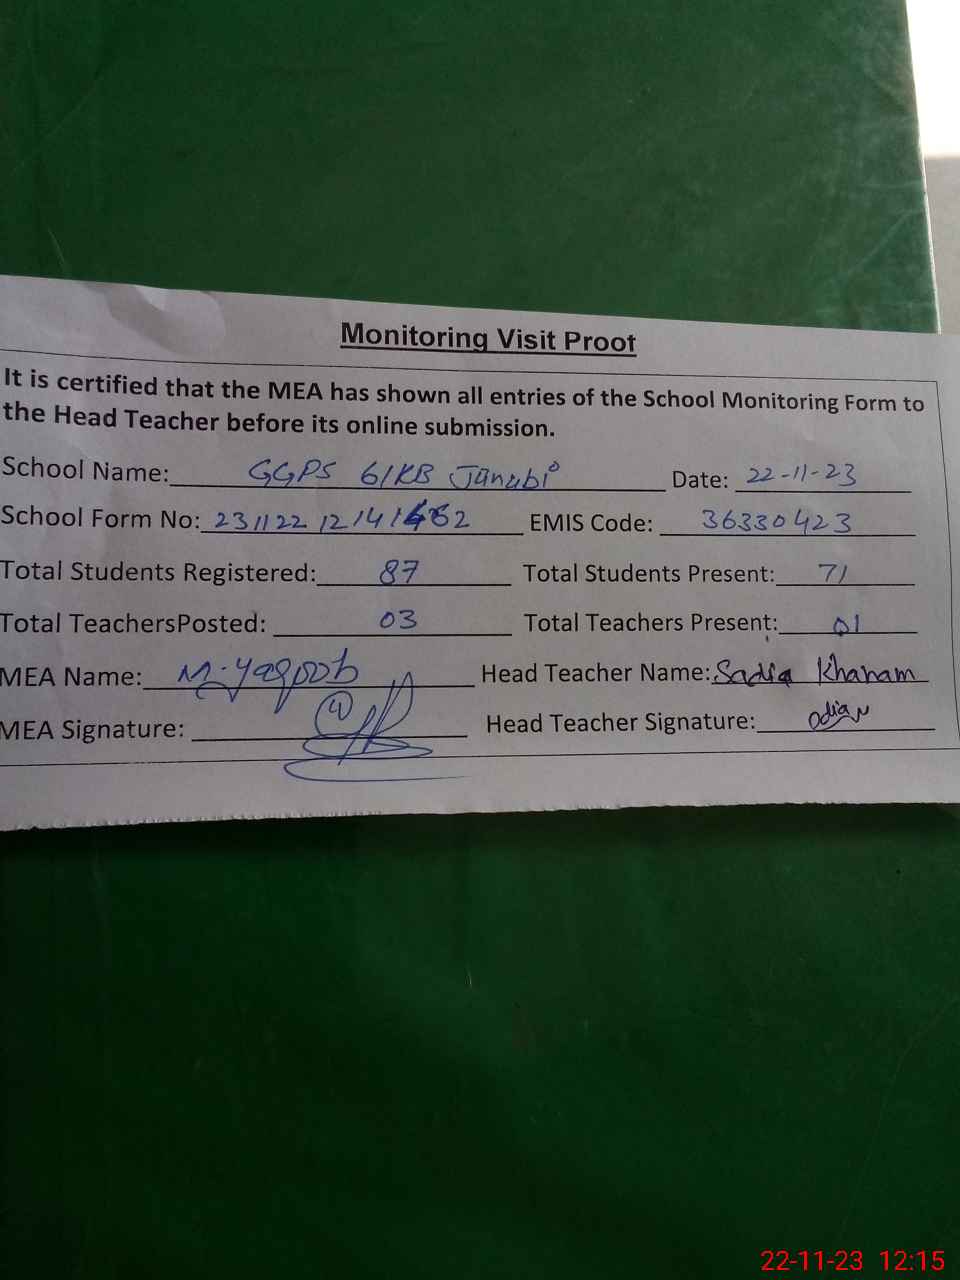 Monitoring Visit Proof
It is certified that the MEA has shown all entries of the School Monitoring Form to
the Head Teacher before its online submission.
School Name: GGPS 61KB Janubi Date: 22-11-23
School Form No: EMIS Code: 36330423
Total Students Registered: 87 Total Students Present: 71
Total TeachersPosted: 03 Total Teachers Present: 01
MEA Name: M. Yaqoob Head Teacher Name: Sadia Khanam
MEA Signature: Head Teacher Signature:
22-11-23 12:15